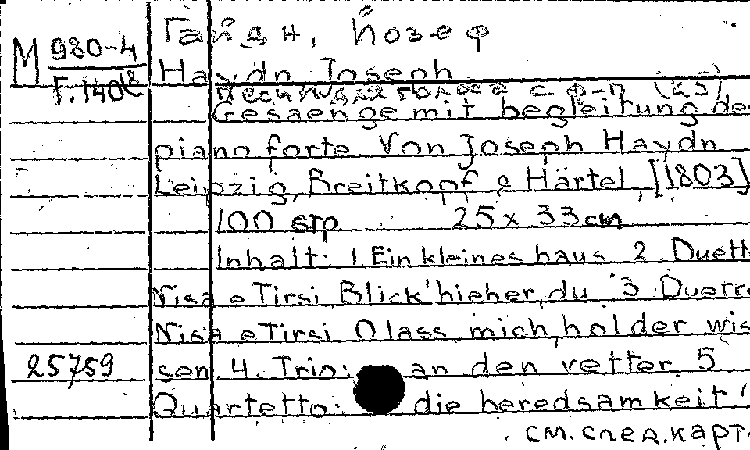 Гайдн, Йозеф
М 980-4
Г. 140
Haydn Joseph
с ф-п (25)
Gesaenge mit begleitung de
piano forte Von Joseph Haydn
Leipzig, Breitkopf e Härtel [1803]
100 стр 25 x 33 см
Inhalt: 1 Ein kleines haus 2 Duett
Nisa e Tirsi Blick'hieher, du 3 Duett
Nisa e Tirsi O lass mich, holder wis
sen 4. Trio: an den vetter 5
25759
Quartetto: die beredsamkeit
см. след. карт.